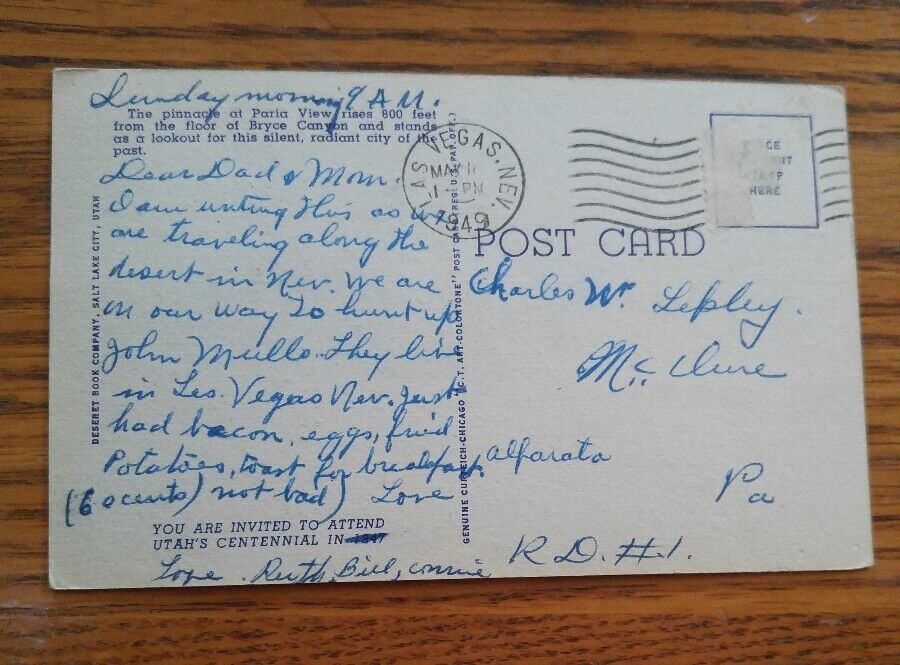 Sunday morning 9 A.M.
The pinnacle at Paria View rises 800 feet
from the floor of Bryce Canyon and stands
as a lookout for this silent, radiant city of the
past.
Dear Dad & Mom.
I am writing this as we
are traveling along the
desert in Nev. We are
on our way to hunt up
John Mullo. They live
in Las. Vegas Nev. Just
had bacon, eggs, fried
Potatoes, toast for breakfast.
(60 cents) not bad) Love
YOU ARE INVITED TO ATTEND
UTAH'S CENTENNIAL IN 1947
Love. Ruth, Bill, Connie
DESERET BOOK COMPANY, SALT LAKE CITY, UTAH
GENUINE CURTEICH-CHICAGO "C.T. ART-COLORTONE" POST CARD (REG. U.S. PAT. OFF.)
LAS VEGAS, NEV.
MAY
PM
1949
PLACE
STAMP
HERE
POST CARD
Charles W. Lepley.
Mc Clure
alfarata
Pa
R.D. #1.